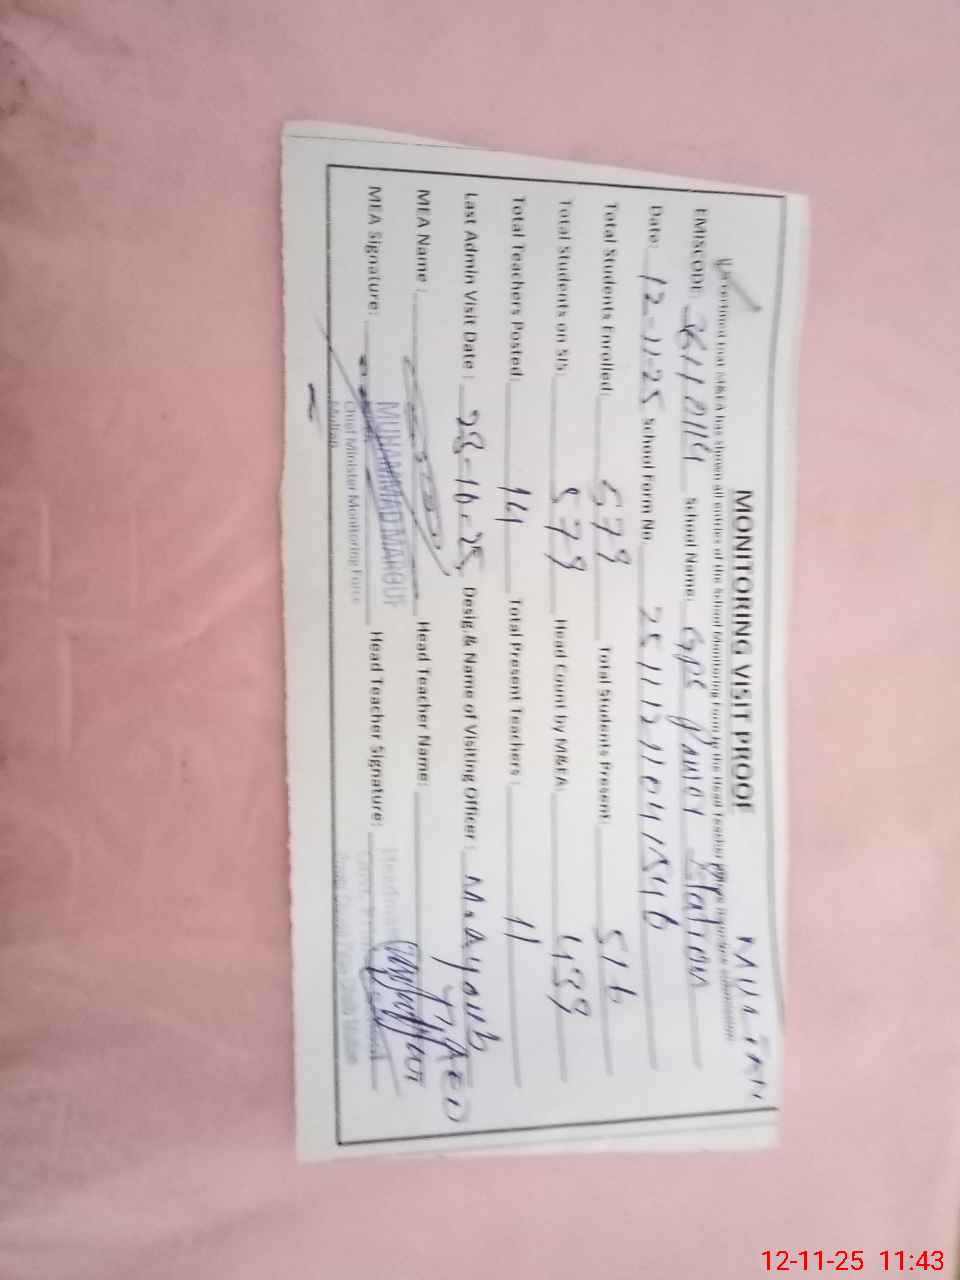 MONITORING VISIT PROOF
MULTAN
It is certified that M&EA has shown all entries of the School Monitoring Form to the Head Teacher
EMISCODE: School Name: GPS Power Station
Date: 12-11-25 School Form No. 25111211041546
Total Students Enrolled: 579 Total Students Present: 516
Total Students on SIS: 579 Head Count by M&EA: 439
Total Teachers Posted: 14 Total Present Teachers: 11
Last Admin Visit Date: 28-10-25 Desig.& Name of Visiting Officer: M.Ayoub
AEO
MEA Name: Head Teacher Name:
MUHAMMAD MAROUF
MEA Signature: Head Teacher Signature:
Chief Minister Monitoring Force
Multan
12-11-25 11:43